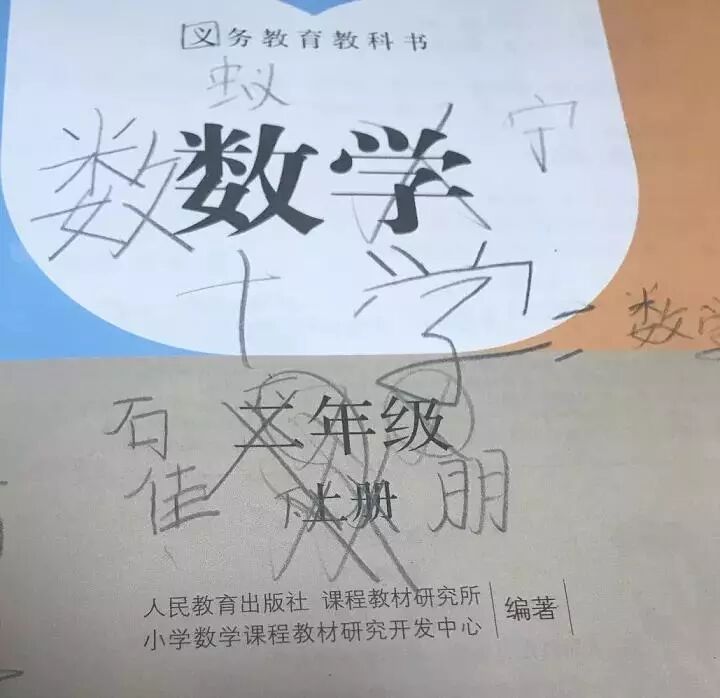 义务教育教科书
蚁
数 数学 宁
十 学 = 数学
石 二年级
佳 上册 朋
人民教育出版社 课程教材研究所
小学数学课程教材研究开发中心
编著